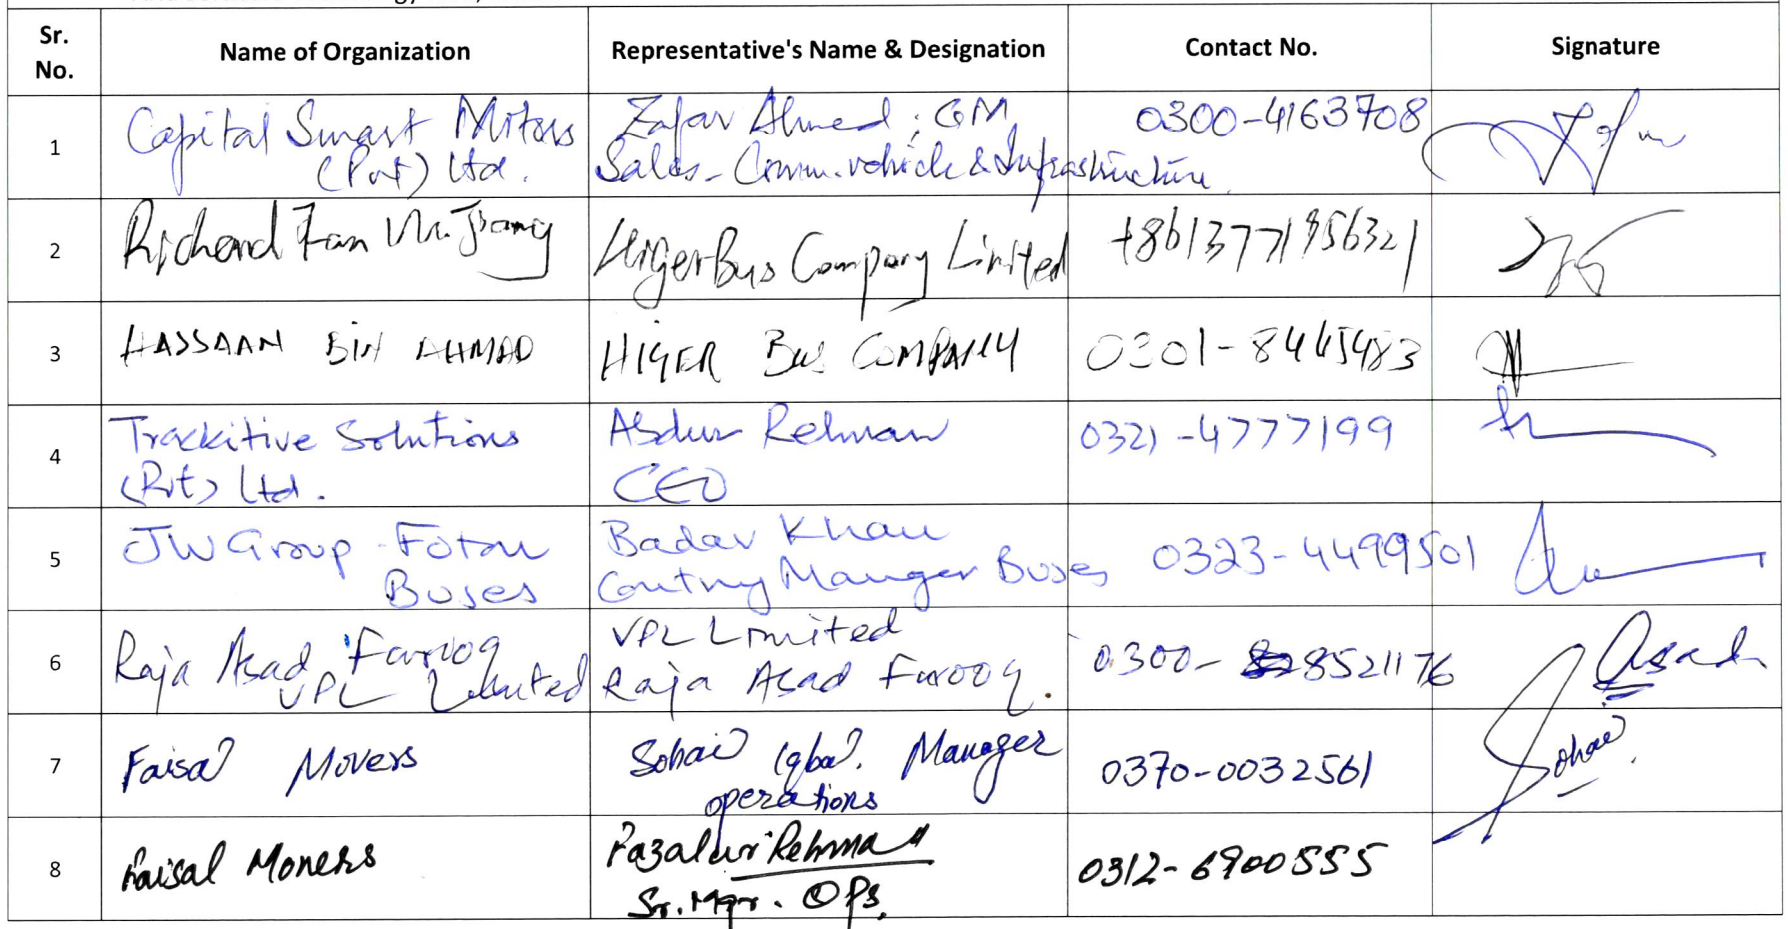 Sr. No.
Name of Organization
Representative's Name & Designation
Contact No.
Signature
1
Capital Smart Motors
(Pvt) Ltd.
Zafar Ahmed; GM
Sales-Comm.vehicle & Infrastructure
0300-4163708
2
Richard Fan Mr. Jiang
Higer Bus Company Limited
+8613771956321
3
HASSAAN BIN AHMAD
HIGER BUS COMPANY
0301-8445483
4
Trackitive Solutions
(Pvt) Ltd.
Abdur Rehman
CEO
0321-4777199
5
JW Group - Foton
Buses
Badar Khan
Country Manger Buses
0323-4499501
6
Raja Asad Farooq
VPL Limited
VPL Limited
Raja Asad Farooq.
0300-8521176
Asad
7
Faisal Movers
Sohail Iqbal. Manager
operations
0370-0032561
Sohail
8
Faisal Movers
Fazalur Rehman
Sr. Mgr. OPs.
0312-6900555